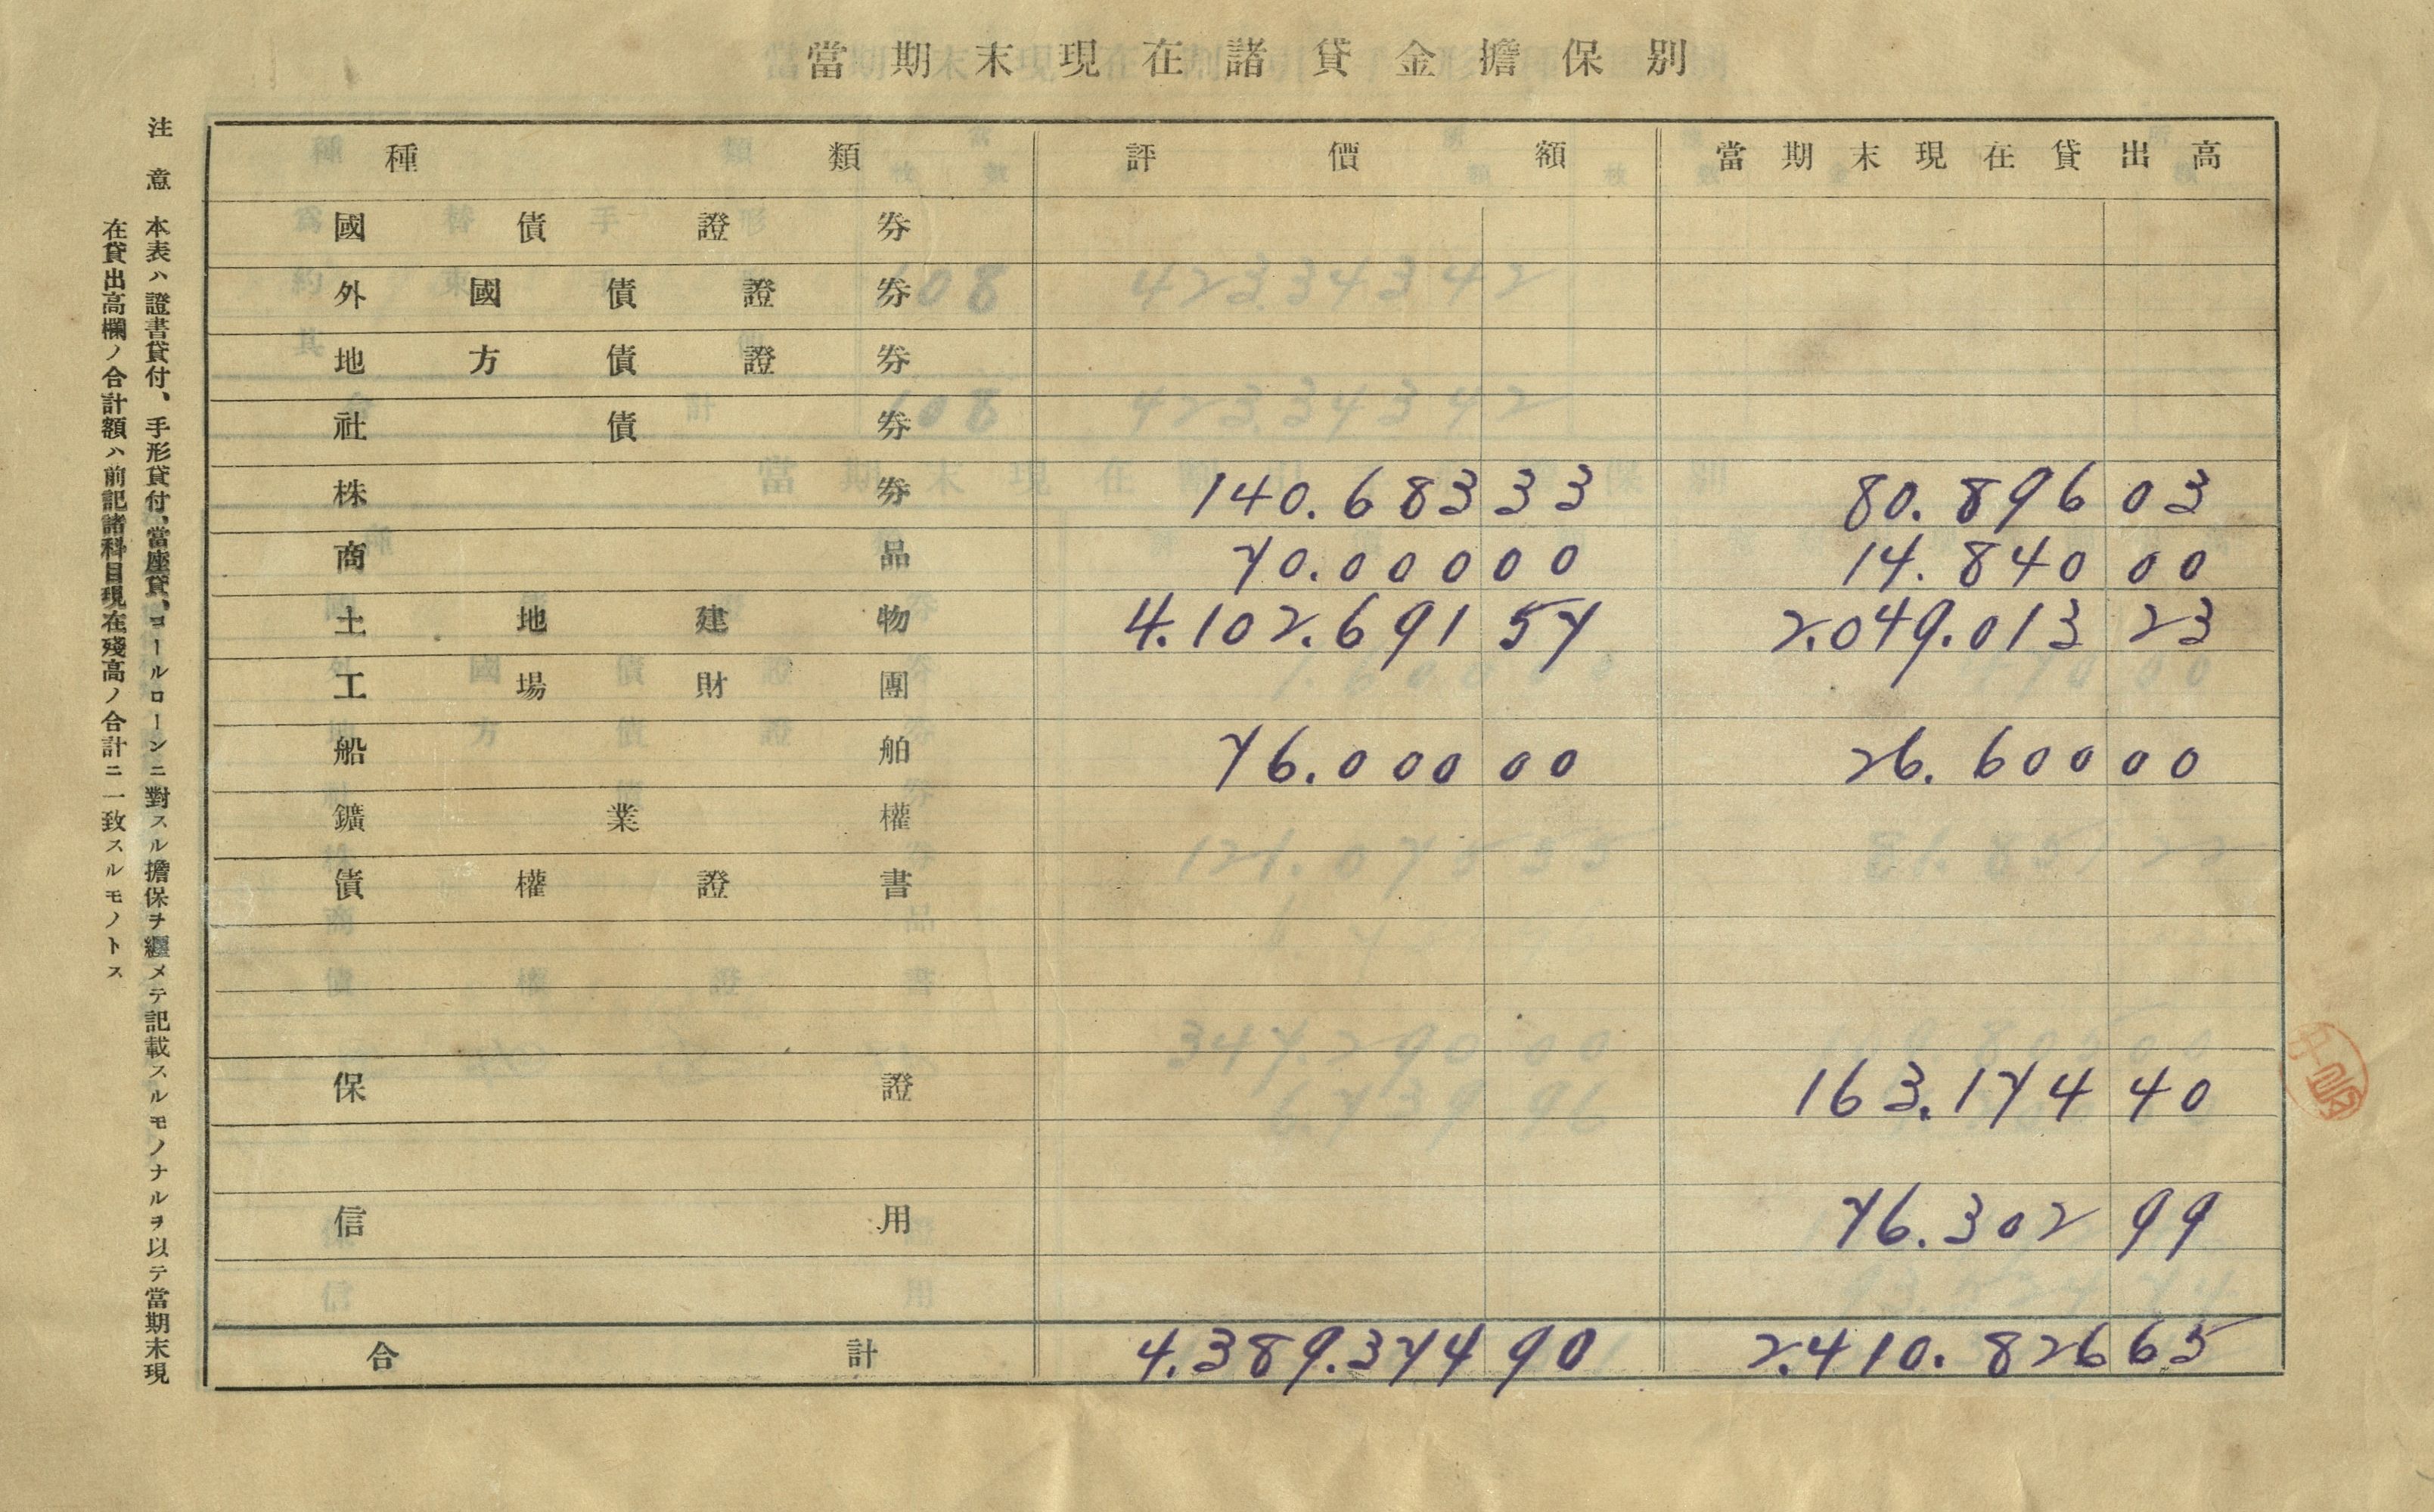 當期末現在諸貸金擔保別
種類 評價額 當期末現在貸出高
國債證券
外國債證券
地方債證券
社債券
株券 140.683 33 80.896 03
商品 70.000 00 14.840 00
土地建物 4.102.691 57 2.049.013 23
工場財團
船舶 76.000 00 26.600 00
鑛業權
債權證書
保證 163.174 40
信用 76.302 99
合計 4.389.374 90 2.410.826 65
注意 本表ハ證書貸付、手形貸付、當座貸、コールローンニ對スル擔保ヲ纒メテ記載スルモノナルヲ以テ當期末現
在貸出高欄ノ合計額ハ前記諸科目現在殘高ノ合計ニ一致スルモノトス